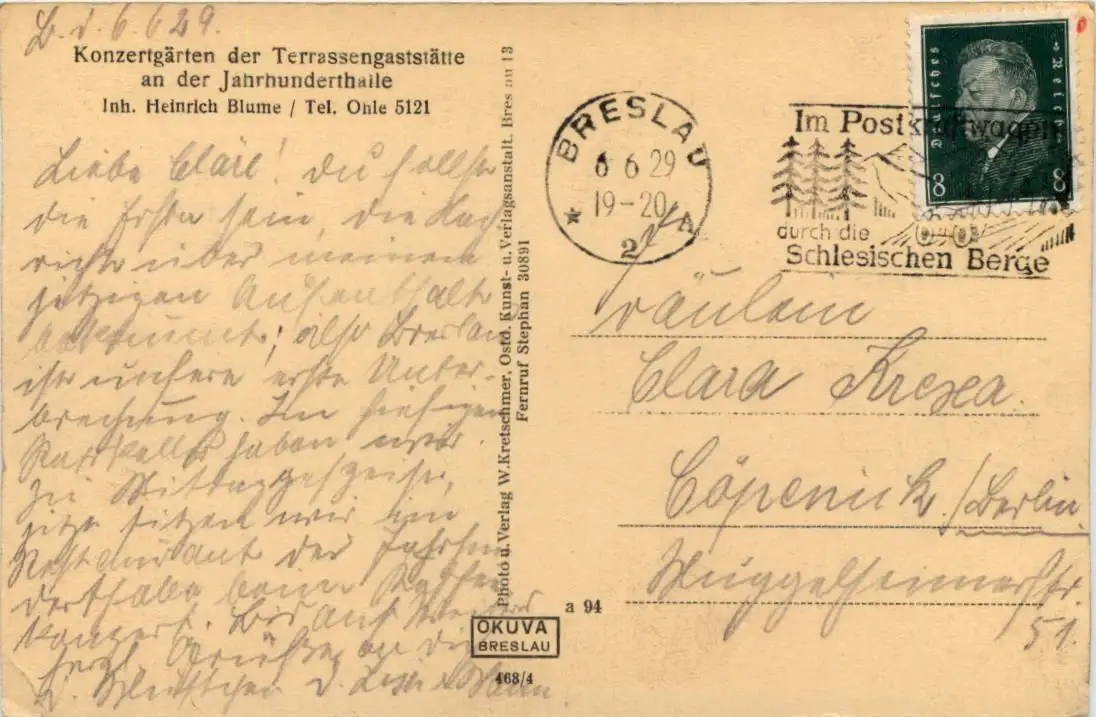 B. d. 6.6.29.
Konzertgärten der Terrassengaststätte
an der Jahrhunderthalle
Inh. Heinrich Blume / Tel. Ohle 5121
Liebe Cläre! Du sollst
die Erste sein, die Nach
richt über meinen
jetzigen Aufenthalt
bekommt; also Breslau
ist unsere erste Unter-
brechung. Im hiesigen
Ratskeller haben wir
zu Mittag gespeist,
jetzt sitzen wir im
Restaurant der Jahrhun
derthalle beim Kaffee
konzert. Bis auf weiteres
herzl. Grüße an die
u.
Photo u. Verlag W. Kretschmer, Ostd. Kunst- u. Verlagsanstalt, Breslau 13
Fernruf Stephan 30891
OKUVA
BRESLAU
468/4
a 94
BRESLAU
6 6 29
19-20
2 A
Im Postkraftwagen
durch die
Schlesischen Berge
Deutsches Reich
8 8
Fräulein
Clara Krexa.
Cöpenick/Berlin
Müggelheimerstr.
51.